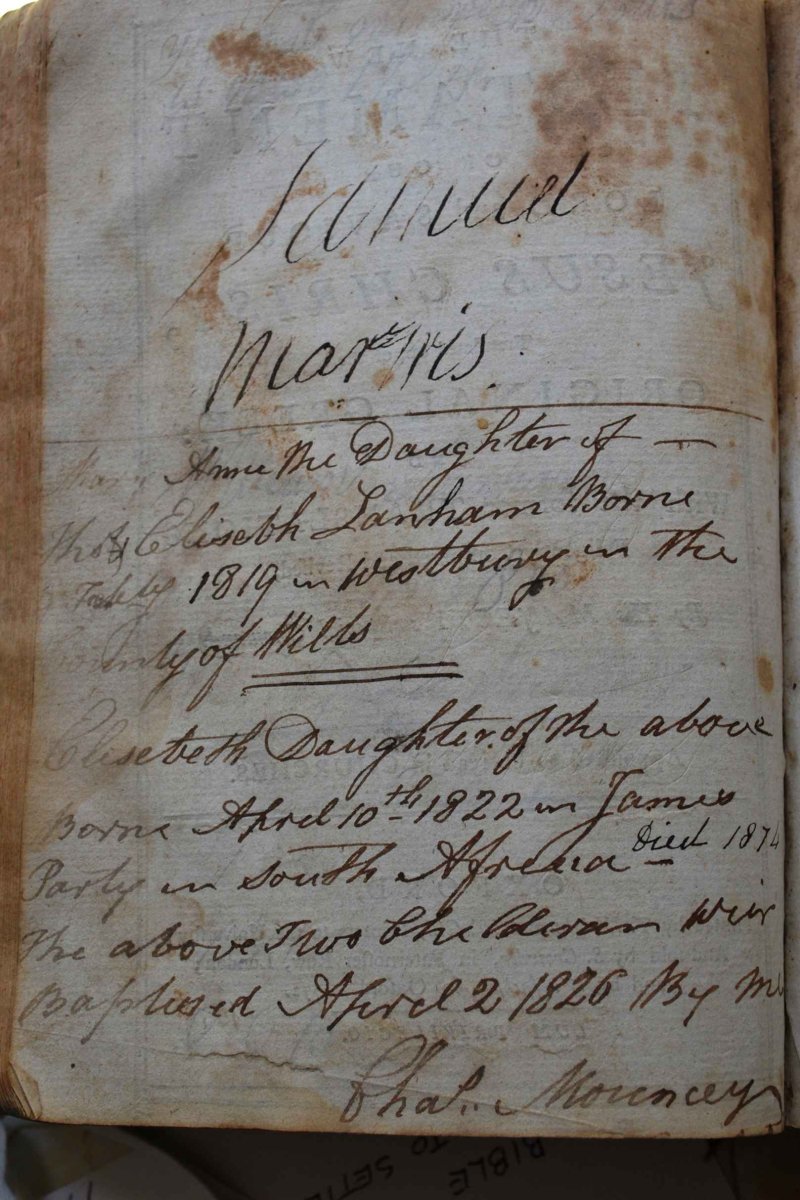 Samuel
Martris
Mary Anne the Daughter of —
Thos & Elisebth Lanham Borne
1819 in Westbury in the
County of Wilts
Elisebeth Daughter of the above
Borne Aprel 10th 1822 in James
Party in South Afreca Died 1874
the above Two Chelderan weir
Baptised Aprel 2 1826 By Me
Chas. Mouncey
BIBLE
TO SETTL